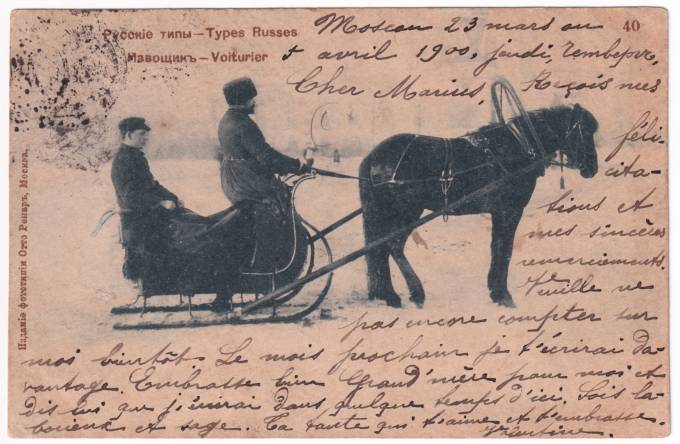 Русскіе типы — Types Russes
Извощикъ — Voiturier
40
Moscou 23 mars ou
5 avril 1900, jeudi, Четвергъ,
Cher Marius, Reçois mes
félici-
cita-
tions et
mes sincères
remerciements.
Veuille ne
pas encore compter sur
moi bientôt. Le mois prochain je t'écrirai da-
vantage. Embrasse bien Grand'mère pour moi et
dis lui que j'écrirai dans quelque temps d'ici. Sois la-
borieux et sage. Ta tante qui t'aime et t'embrasse.
Изданіе фототипіи Отто Ренаръ, Москва.